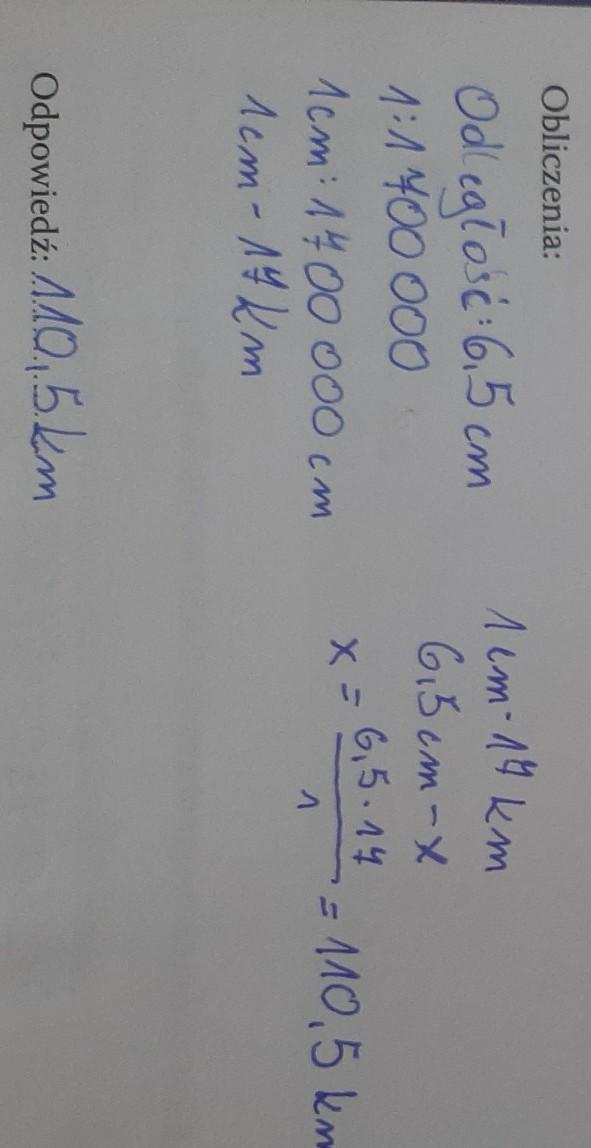 Obliczenia:
Odległość: 6,5 cm
1:1 700 000
1cm : 1 700 000 cm
1cm - 17 km
1 cm - 17 km
6,5 cm - x
x = 6,5 · 17 / 1 = 110,5 km
Odpowiedź: 110,5 km